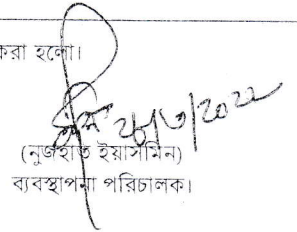 করা হলো।
২৮/৩/২০২২
(নুজহাত ইয়াসমিন)
ব্যবস্থাপনা পরিচালক।